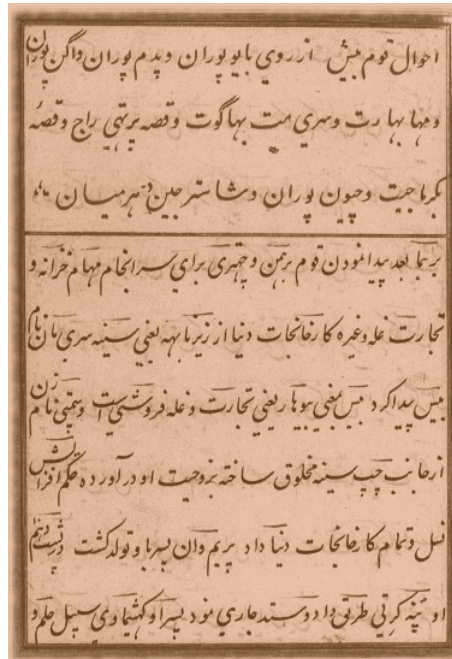 احوال قوم بیش از روی بایو پوران و پدم پوران واگن پوران
و مها بهارت و سری مت بهاگوت و قصه پرتهی راج و قصهٔ
بکرماجیت و جیون پوران و شاستر جین دهرمیان
برهما بعد پیدا نمودن قوم برهمن و چهتری برای سرانجام مهام خزانه و
تجارت غله وغیره کارخانجات دنیا از زیر بانهه یعنی سینه سری مان نام
بیس پیدا کرد بیس بمعنی بیوهار یعنی تجارت و غله فروشی است و نام زن
از جانب چپ سینه مخلوق ساخته بزوجیت او در آورده حکم افزایش
نسل و تمام کارخانجات دنیا داد پریم وان پسر با و تولد گشت در پشت دهم
او طریق داد و ستد جاری نمود پسر او سپیل حلم و